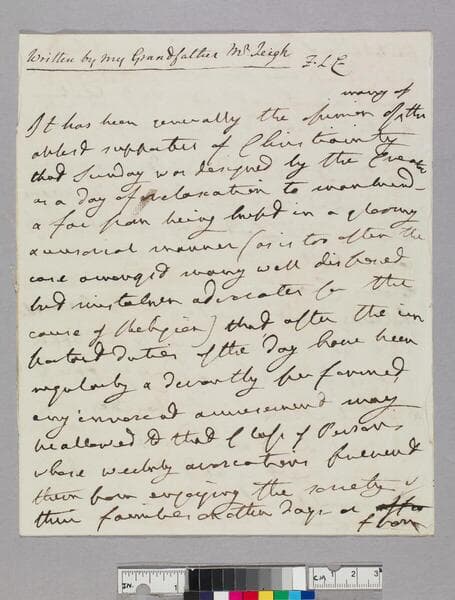 Written by my Grandfather Mr Leigh
many of
It has been generally the opinion of the
ablest supporters of Christianity
that Sunday was designed by the Creator
as a day of relaxation to mankind
& far from being kept in a gloomy
& unsocial manner (as is too often the
case amongst many well disposed
but mistaken advocates for the
cause of Religion) that after the im
portant duties of the day have been
regularly & devoutly performed
any innocent amusement may
be allowed to that Class of Persons
whose weekly avocations prevent
them from enjoying the society of
their families on other days or
from
IN.
1
2
CM
1
2
3